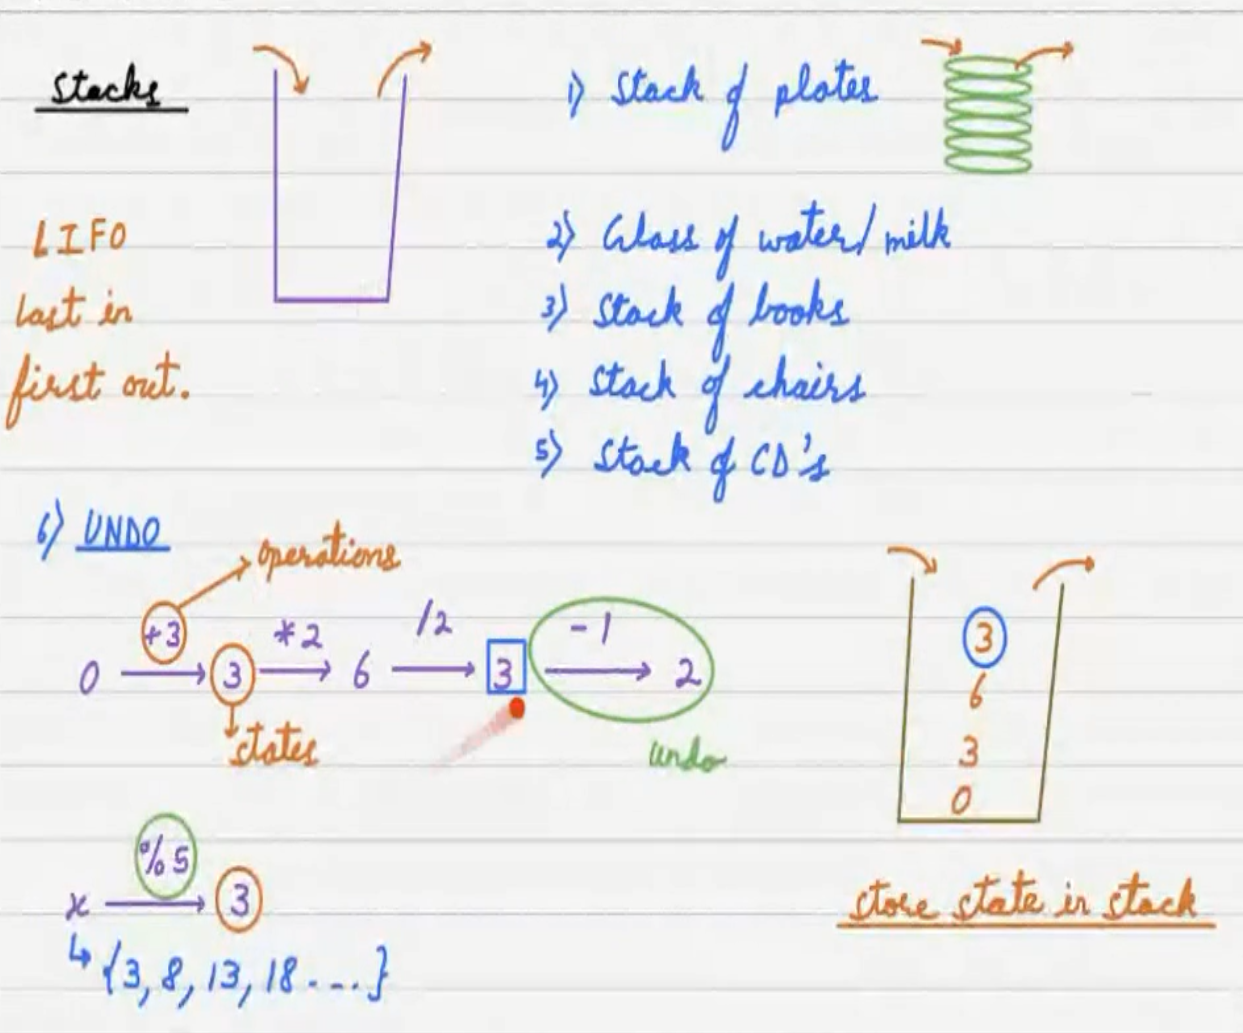 Stacks
LIFO
last in
first out.
1) Stack of plates
2) Glass of water/milk
3) Stack of books
4) Stack of chairs
5) Stack of CD's
6) UNDO
operations
+3 *2 /2 -1
0 3 6 3 2
states
undo
3
6
3
0
store state in stack
% 5
x 3
{3, 8, 13, 18 ....}